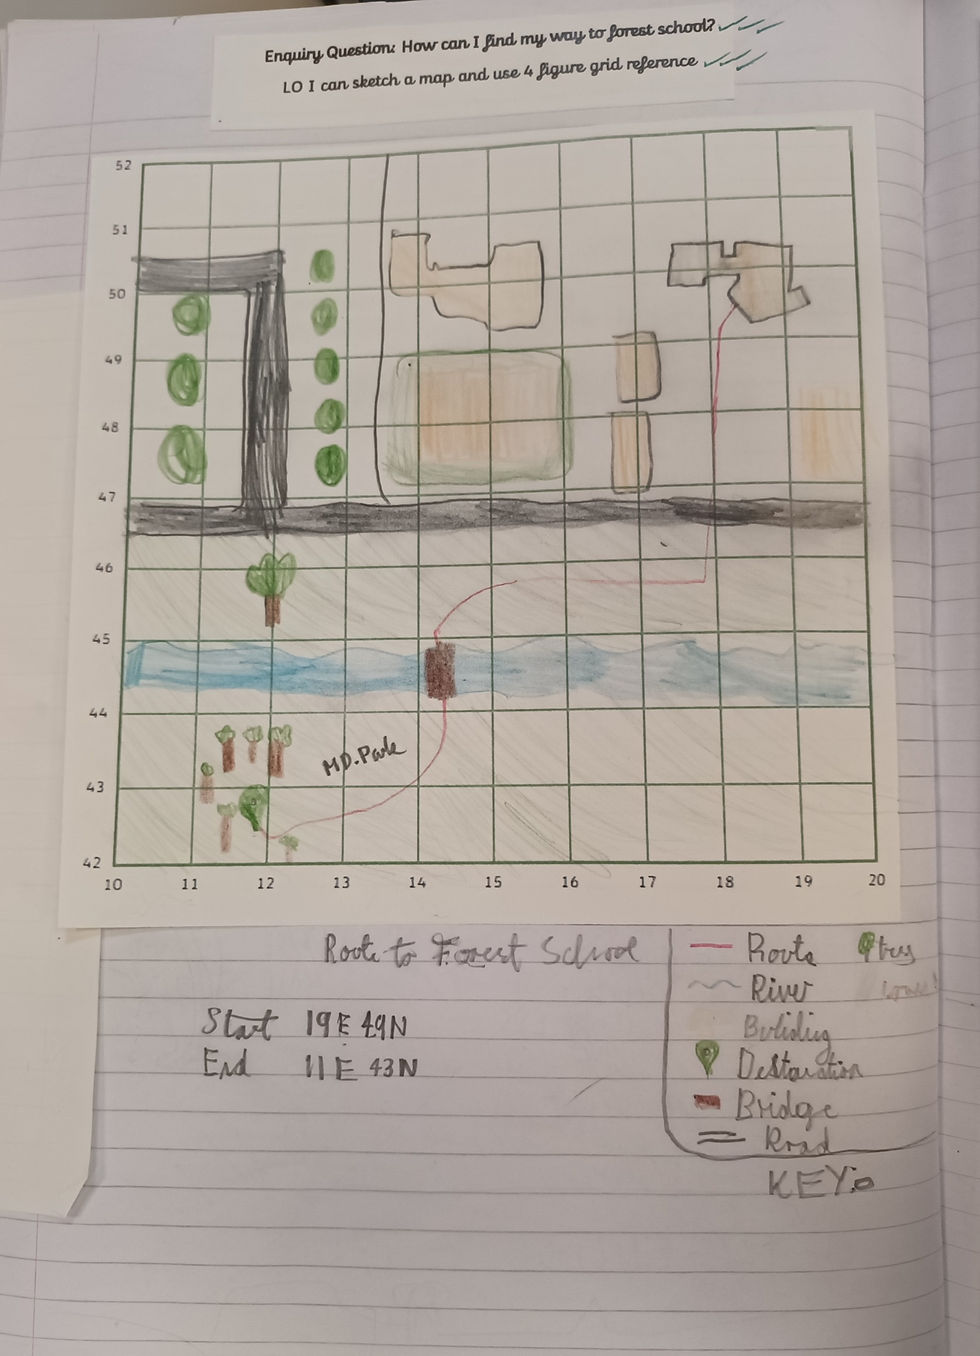 Enquiry Question: How can I find my way to forest school?
LO I can sketch a map and use 4 figure grid reference
52
51
50
49
48
47
46
45
44
MD.Park
43
42
10 11 12 13 14 15 16 17 18 19 20
Route to Forest School
Start 19E 49N
End 11E 43N
Route
River
Buliding
Bridge
Road
KEY: